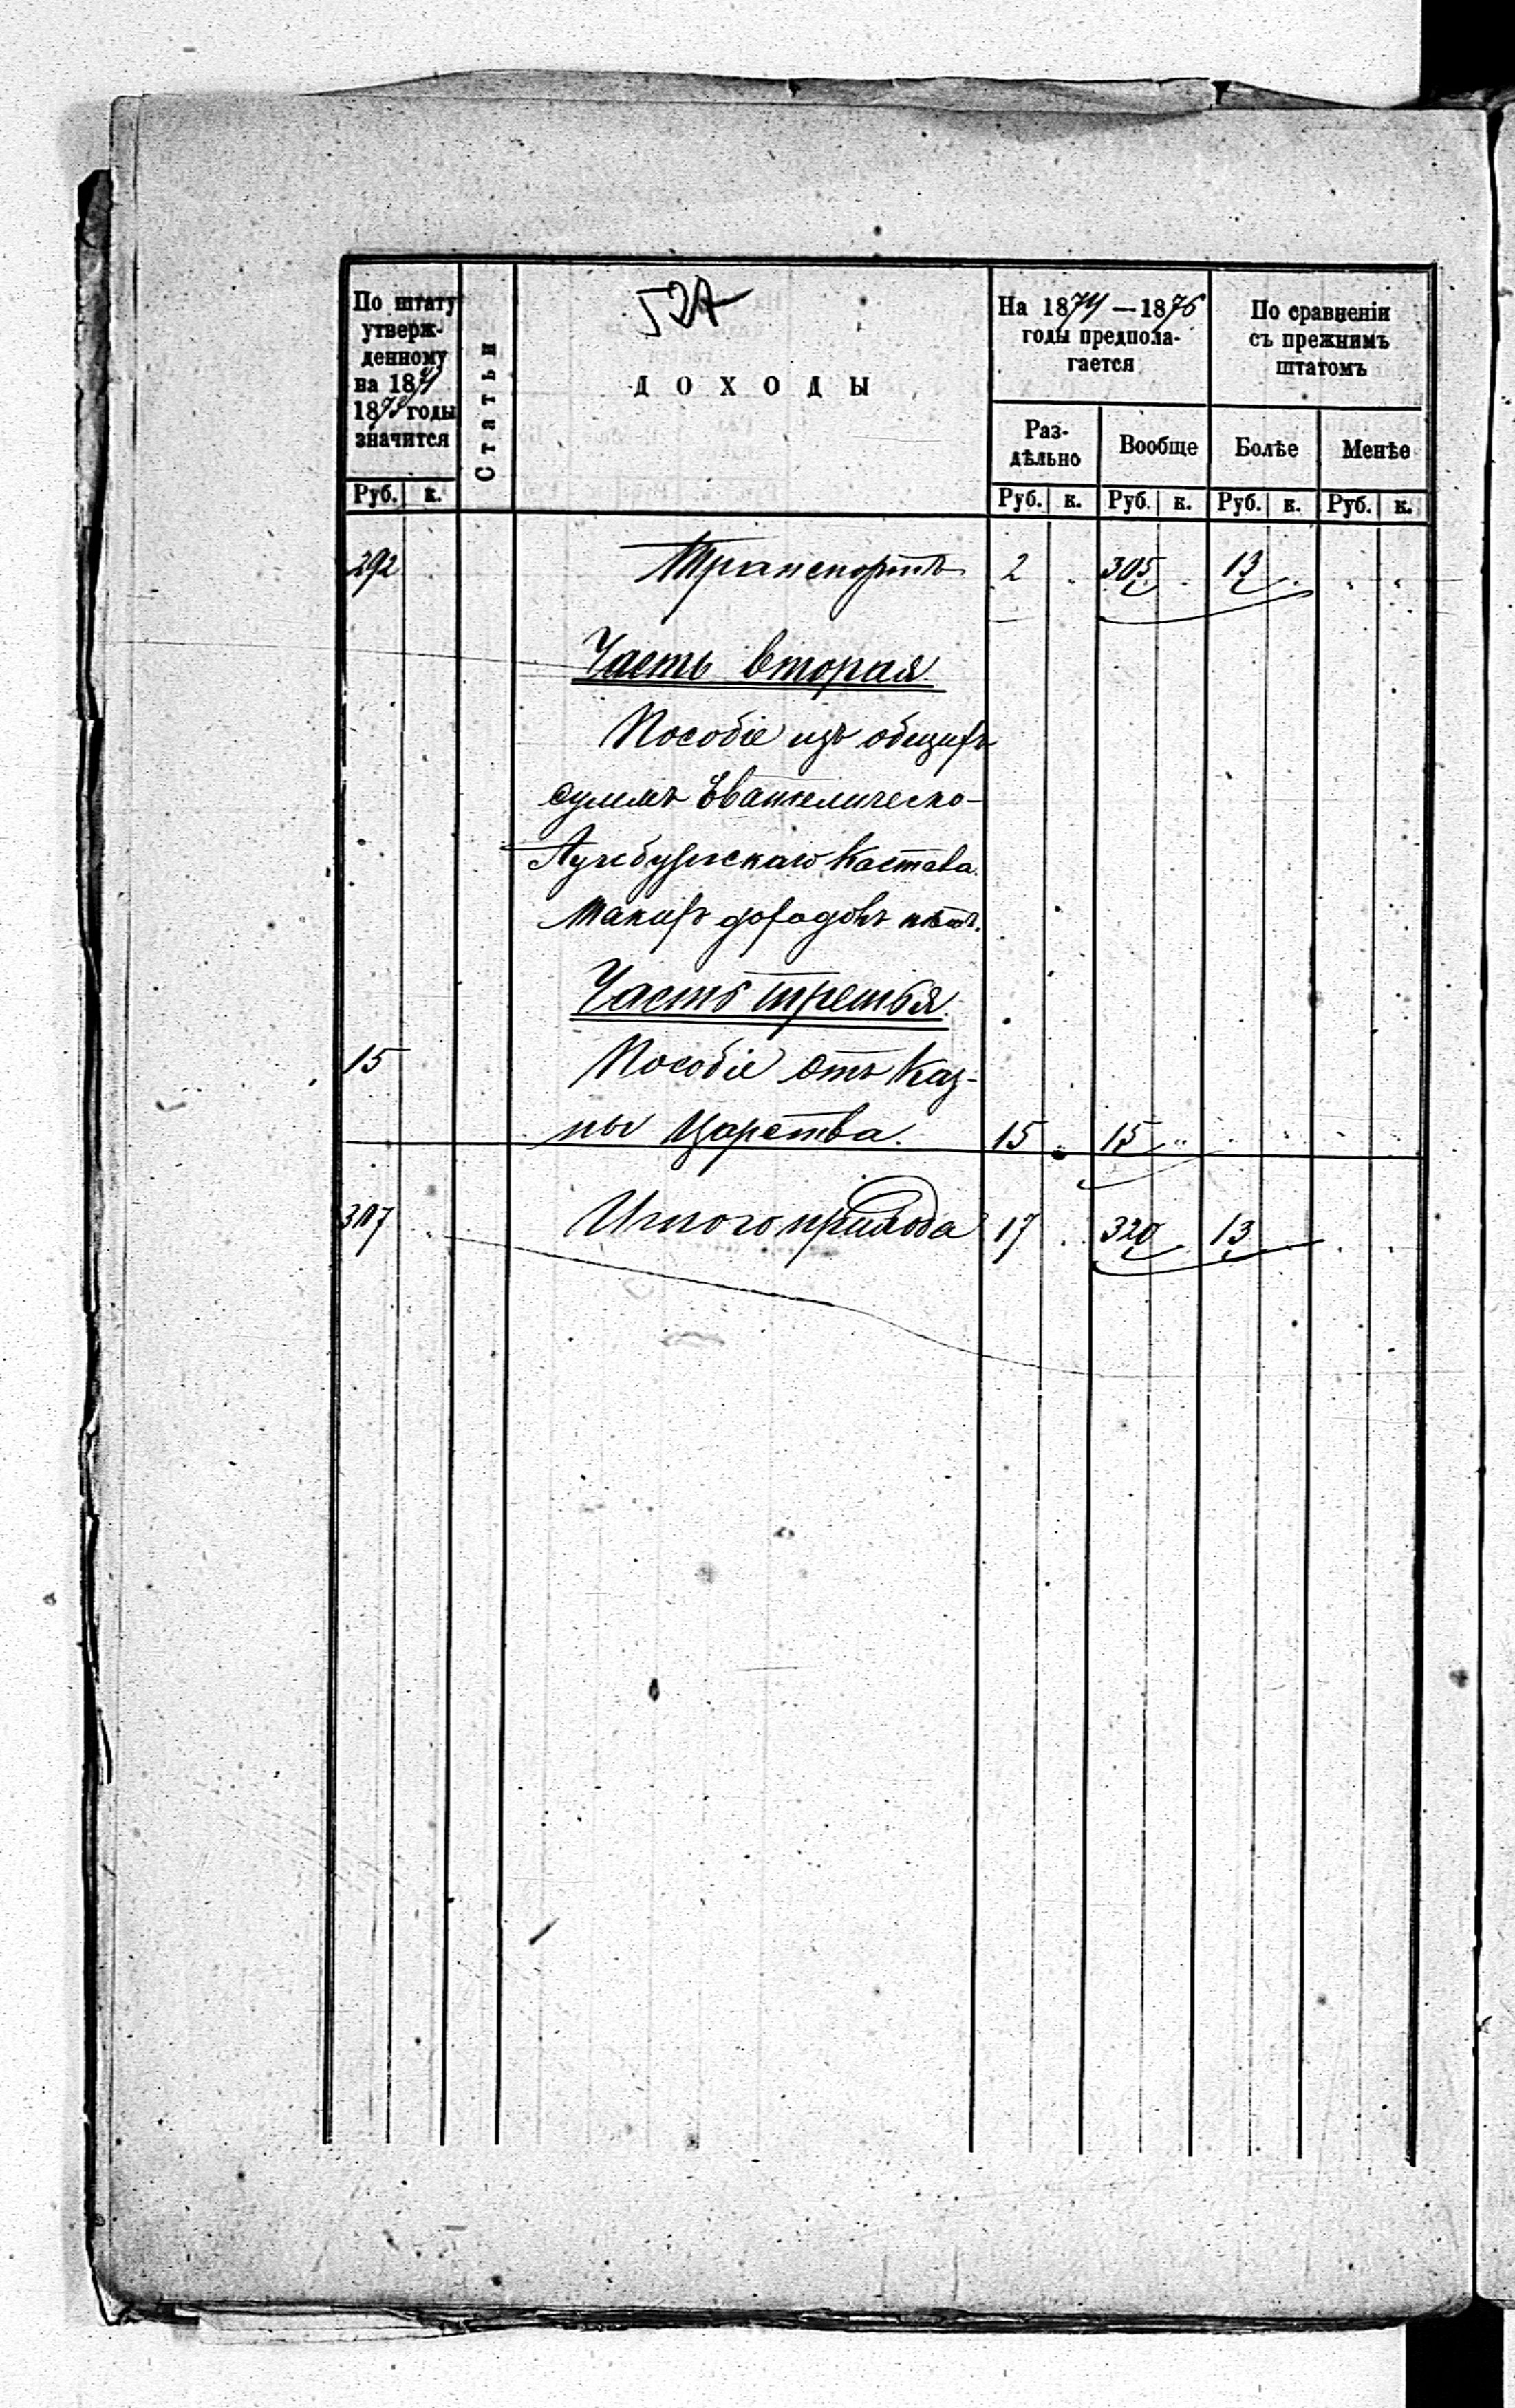 По штату
утверж-
денному
на 1871
1873 годы
значится
Статьи
527
ДОХОДЫ
На 1874—1876
годы предпола-
гается
По сравненіи
съ прежнимъ
штатомъ
Раз-
дѣльно
Вообще
Болѣе
Менѣе
Руб. к. Руб. к. Руб. к. Руб. к. Руб. к.
292 Транспортъ 2 305 13
Часть вторая
Пособіе изъ общихъ
суммъ Евангелическо-
Аугсбургскаго Костела.
Такихъ доходовъ нѣтъ.
Часть третья.
15 Пособіе отъ Каз-
ны Царства. 15 15
307 Итого прихода 17 320 13